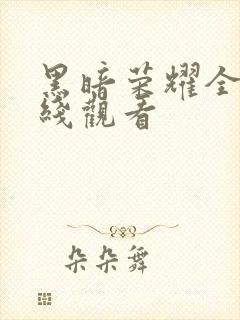 黑暗荣耀全
綫觀看
朵朵舞